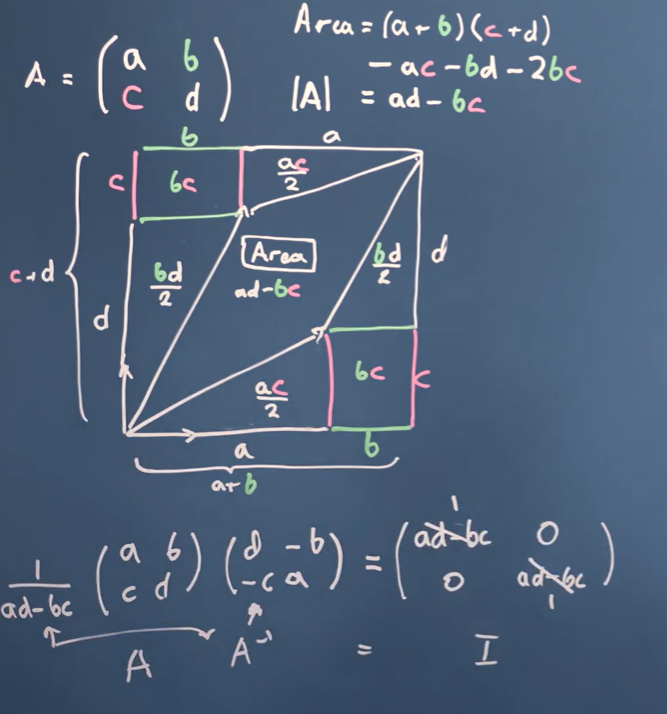 A = (a b
c d)
Area = (a+b)(c+d)
- ac - bd - 2bc
|A| = ad - bc
b a
c bc ac/2
c+d bd/2 Area bd/2 d
ad-bc
d
ac/2 bc c
a b
a+b
1/(ad-bc) (a b
c d) (d -b
-c a) = (ad-bc 1 0
0 ad-bc 1)
A A⁻¹ = I